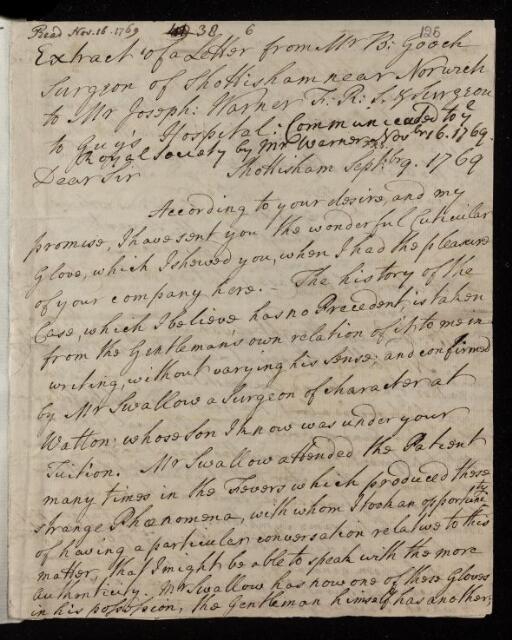 Read Nov. 16. 1769 38 6 126
Extract of a Letter from Mr B: Gooch
Surgeon of Shottisham near Norwich
to Mr Joseph: Warner F: R: S. & Surgeon
to Guy's Hospital: Communicated to ye
Royal Society by Mr Warner Novbr 16. 1769.
Dear Sir Shottisham Septbr 9. 1769
According to your desire, and my
promise, I have sent you the wonderful Cuticular
Glove, which I shewed you, when I had the pleasure
of your company here. The history of the
Case, which I believe has no Precedent, is taken
from the Gentleman's own relation of it to me in
writing, without varying his sense; and confirmed
by Mr Swallow a Surgeon of character at
Watton; whose Son I know was under your
Tuition. Mr Swallow attended the Patient
many times in the Fevers which produced these
strange Phænomena, with whom I took an opportunity
of having a particular conversation relative to this
matter, that I might be able to speak with the more
Authenticity. Mr Swallow has now one of these Gloves
in his possession, the Gentleman himself has another;